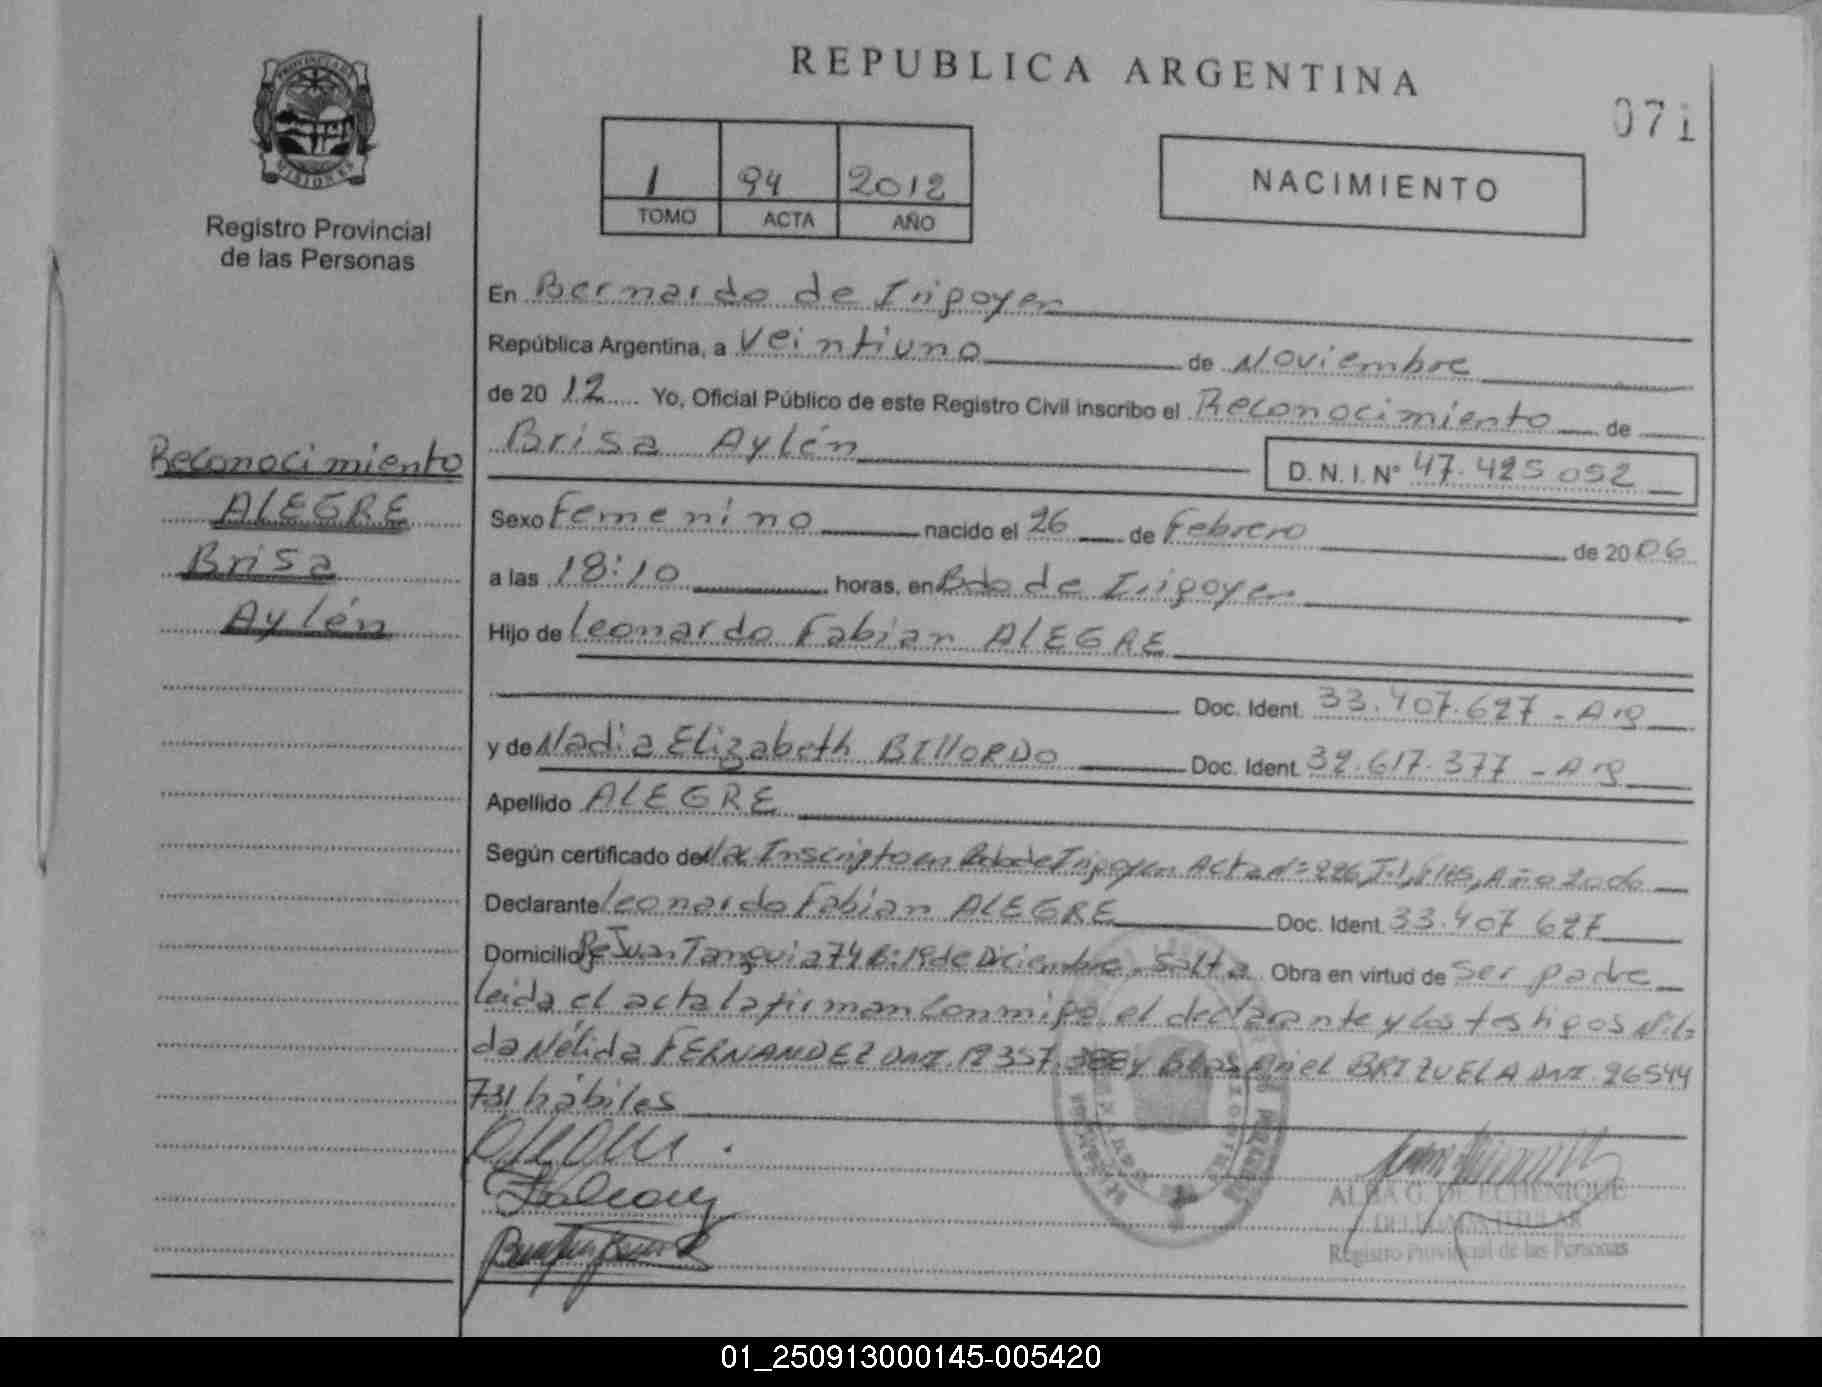 REPUBLICA ARGENTINA
071
PROVINCIA DE
MISIONES
Registro Provincial
de las Personas
1 94 2012
TOMO ACTA AÑO
NACIMIENTO
En Bernardo de Irigoyen
República Argentina, a Veintiuno de Noviembre
de 2012 Yo, Oficial Público de este Registro Civil inscribo el Reconocimiento de
Brisa Aylén
D. N. I. Nº 47.425.052
Reconocimiento
ALEGRE
Brisa
Aylén
Sexo Femenino nacido el 26 de Febrero de 2006
a las 18:10 horas, en Bdo de Irigoyen
Hijo de Leonardo Fabian ALEGRE
Doc. Ident. 33.407.627 - Arg
y de Nadia Elizabeth BILLORDO Doc. Ident. 32.617.377 - Arg
Apellido ALEGRE
Según certificado de Nac Inscripto en Bdo de Irigoyen Acta Nº 226, T.1, Año 2006
Declarante Leonardo Fabian ALEGRE Doc. Ident. 33.407 627
Domicilio Juan Tanguia 74 B: 19 de Diciembre - Salta Obra en virtud de Ser padre
leida el acta la firman conmigo el declarante y los testigos Nil
da Nélida FERNANDEZ DNI. 12 357.388 y Blas Ariel BRIZUELA DNI. 26544
731 hábiles
ALBA G. DE ECHENIQUE
DELEGADA TITULAR
Registro Provincial de las Personas
01_250913000145-005420